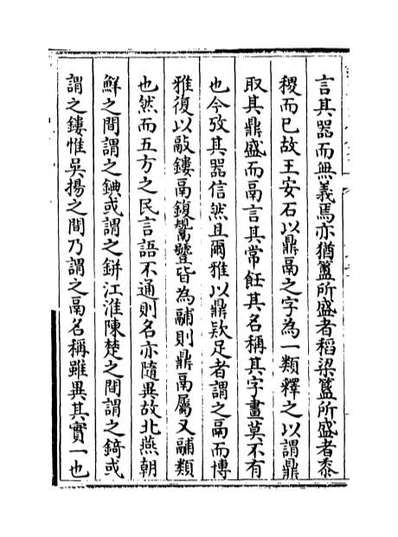 言其器而無義焉亦猶簠所盛者稻粱簋所盛者黍
稷而已故王安石以鼎鬲之字為一類釋之以謂鼎
取其鼎盛而鬲言其常飪其名稱其字畫莫不有
也今攷其器信然且爾雅以鼎欵足者謂之鬲而博
雅復以敲鏤鬲鍑鬵鬶皆為鬴則鼎鬲屬又鬴類
也然而五方之民言語不通則名亦隨異故北燕朝
鮮之間謂之錪或謂之鉼江淮陳楚之間謂之錡或
謂之鏤惟吳揚之間乃謂之鬲名稱雖異其實一也